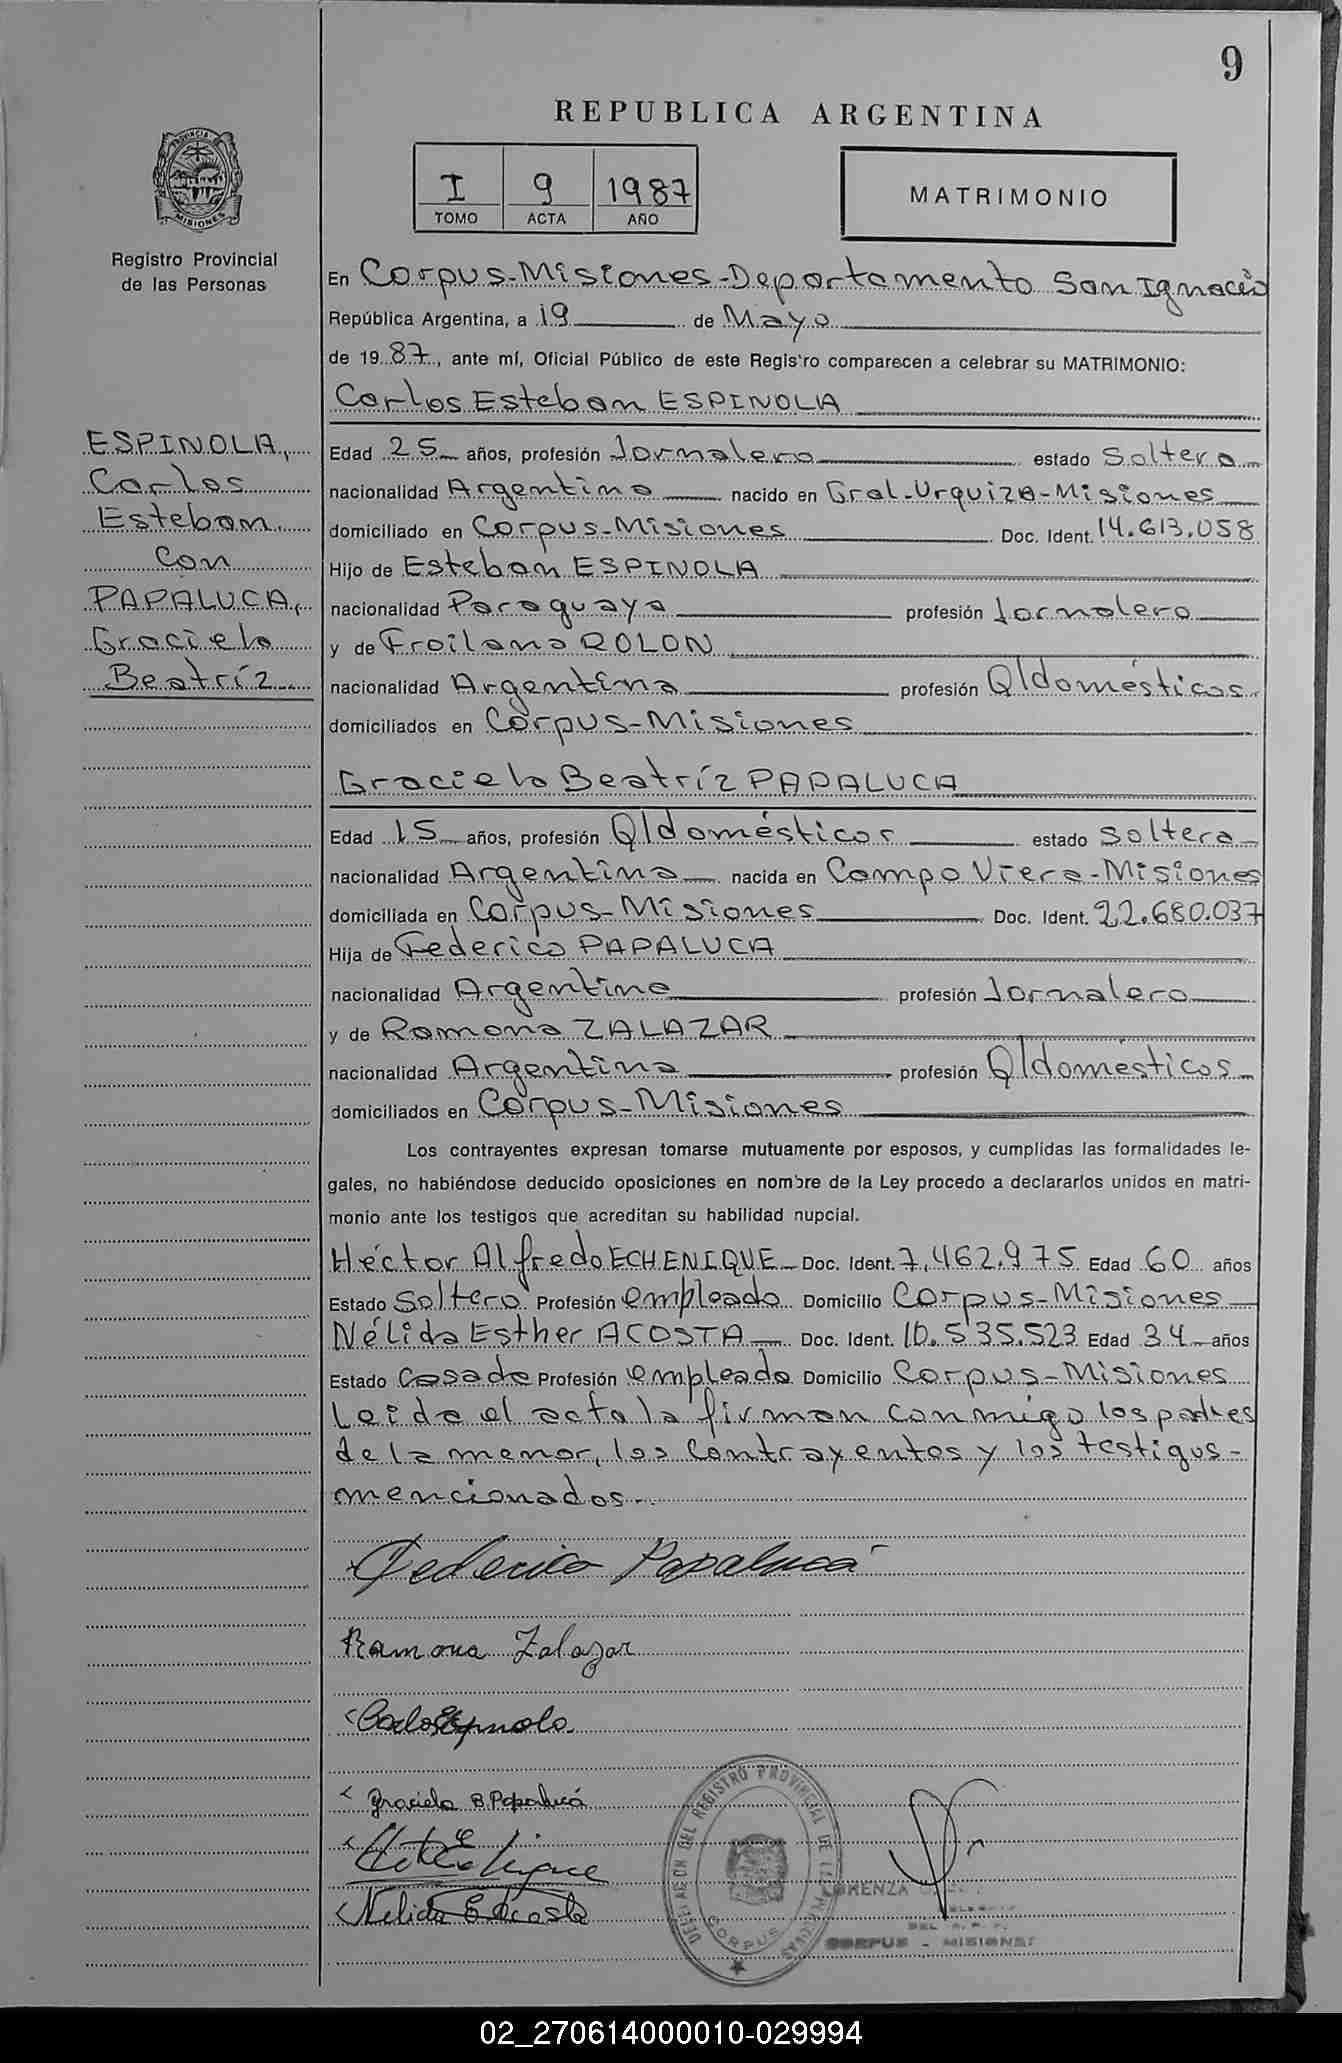 9
REPUBLICA ARGENTINA
I 9 1987
TOMO ACTA AÑO
MATRIMONIO
PROVINCIA DE
MISIONES
Registro Provincial
de las Personas
En Corpus-Misiones-Departamento San Ignacio
República Argentina, a 19 de Mayo
de 1987, ante mí, Oficial Público de este Registro comparecen a celebrar su MATRIMONIO:
Carlos Esteban ESPINOLA
ESPINOLA,
Carlos
Esteban
con
PAPALUCA,
Graciela
Beatríz
Edad 25 años, profesión Jornalero estado Soltero
nacionalidad Argentino nacido en Gral-Urquiza-Misiones
domiciliado en Corpus-Misiones Doc. Ident. 14.613.058
Hijo de Esteban ESPINOLA
nacionalidad Paraguaya profesión Jornalero
y de Froilana ROLON
nacionalidad Argentina profesión Q/domésticos
domiciliados en Corpus-Misiones
Graciela Beatríz PAPALUCA
Edad 15 años, profesión Q/domésticos estado Soltera
nacionalidad Argentina nacida en Campo Viera-Misiones
domiciliada en Corpus-Misiones Doc. Ident. 22.680.037
Hija de Federico PAPALUCA
nacionalidad Argentino profesión Jornalero
y de Ramona ZALAZAR
nacionalidad Argentina profesión Q/domésticos
domiciliados en Corpus-Misiones
Los contrayentes expresan tomarse mutuamente por esposos, y cumplidas las formalidades le-
gales, no habiéndose deducido oposiciones en nombre de la Ley procedo a declararlos unidos en matri-
monio ante los testigos que acreditan su habilidad nupcial.
Héctor Alfredo ECHENIQUE Doc. Ident. 7.462.975 Edad 60 años
Estado Soltero Profesión empleado Domicilio Corpus-Misiones
Nélida Esther ACOSTA Doc. Ident. 10.535.523 Edad 34 años
Estado Casada Profesión empleada Domicilio Corpus-Misiones
Leida el acta la firman conmigo los padres
de la menor, los contrayentes y los testigos-
mencionados.
Federico Papaluca
Ramona Zalazar
Carlos Espinola
Graciela B. Papalucá
Nelida E Acosta
DELEGACION DEL REGISTRO PROVINCIAL DE LAS PERSONAS
CORPUS
LORENZA
CORPUS - MISIONES
02_270614000010-029994